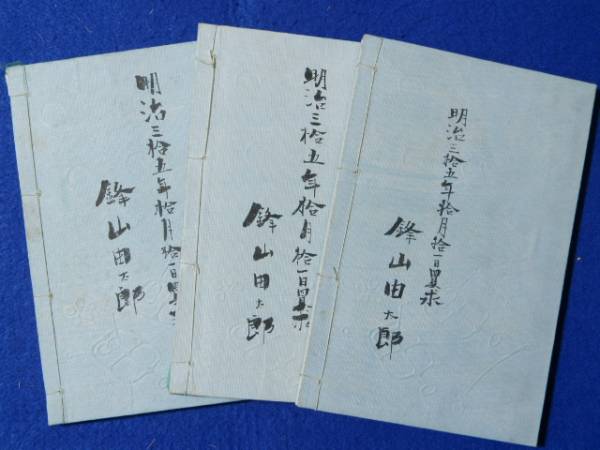 明治三拾五年拾月拾一日買求
鋒山由太郎
明治三拾五年拾月拾一日買求
鋒山由太郎
明治三拾五年拾月拾一日買
鋒山由太郎